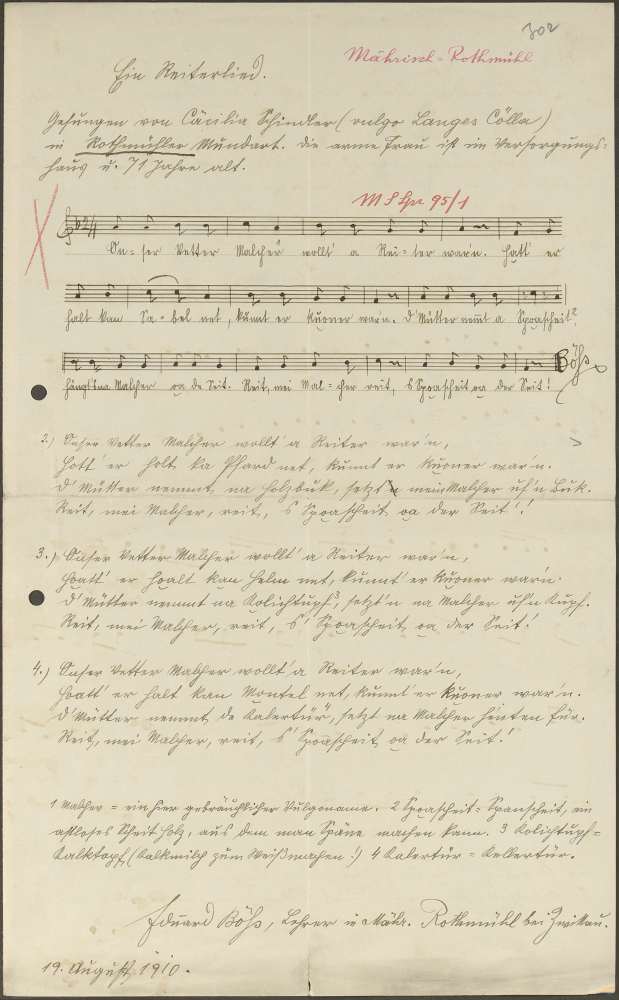 302
Mährisch-Rothmühl
Ein Reiterlied.
Gesungen von Cäcilia Schindler (vulgo Langes Cölla)
in Rothmühler Mundart. Die arme Frau ist im Versorgungs-
haus u. 71 Jahre alt.
95/1
2/4
On-ser Vetter Malcher wollt' a Rei-ter war'n. Hatt' er
halt kan Sa-bel net, kunnt er kuoner war'n. D'Mutter nemt a Spoascheit²,
hängt's na Malcher oa de Seit. Reit, mei Mal-cher reit, s Spoascheit oa der Seit!
Böhs
2.) Onser Vetter Malcher wollt' a Reiter war'n,
Hott' er holt ka Pfard net, kunnt er kuoner war'n.
D' Mutter nemmt na Holzbuk, setzt mein Malcher uf'n Buk.
Reit, mei Malcher, reit, s Spoascheit oa der Seit!
3.) Onser Vetter Malcher wollt' a Reiter war'n,
Hoatt' er hoalt kan Helm net, kunnt' er kuoner war'n.
D' Mutter nemmt na Kolichtupf³, setzt'n na Malcher uf'n Kupf.
Reit, mei Malcher, reit, s' Spoascheit oa der Seit!
4.) Onser Vetter Malcher wollt' a Reiter war'n,
Hoatt' er halt kan Montel net, kunnt' er kuoner war'n.
D' Mutter nemmt de Kalertür⁴, setzt na Malcher hinten für.
Reit, mei Malcher, reit, s' Spoascheit oa der Seit!
1 Malcher = ein hier gebräuchlicher Vulgoname. 2 Spoascheit = Spanscheit, ein
astloses Scheit Holz, aus dem man Späne machen kann. 3 Kolichtupf =
Kalktopf (Kalkmilch zum Weißmachen!) 4 Kalertür = Kellertür.
Eduard Böhs, Lehrer in Mähr. Rothmühl bei Zwittau.
19. August 1910.